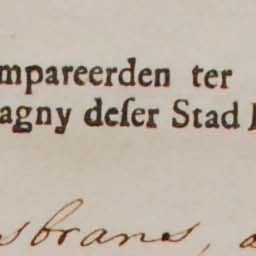 mpareerden ter
agny deſer Stad
sbrans, a